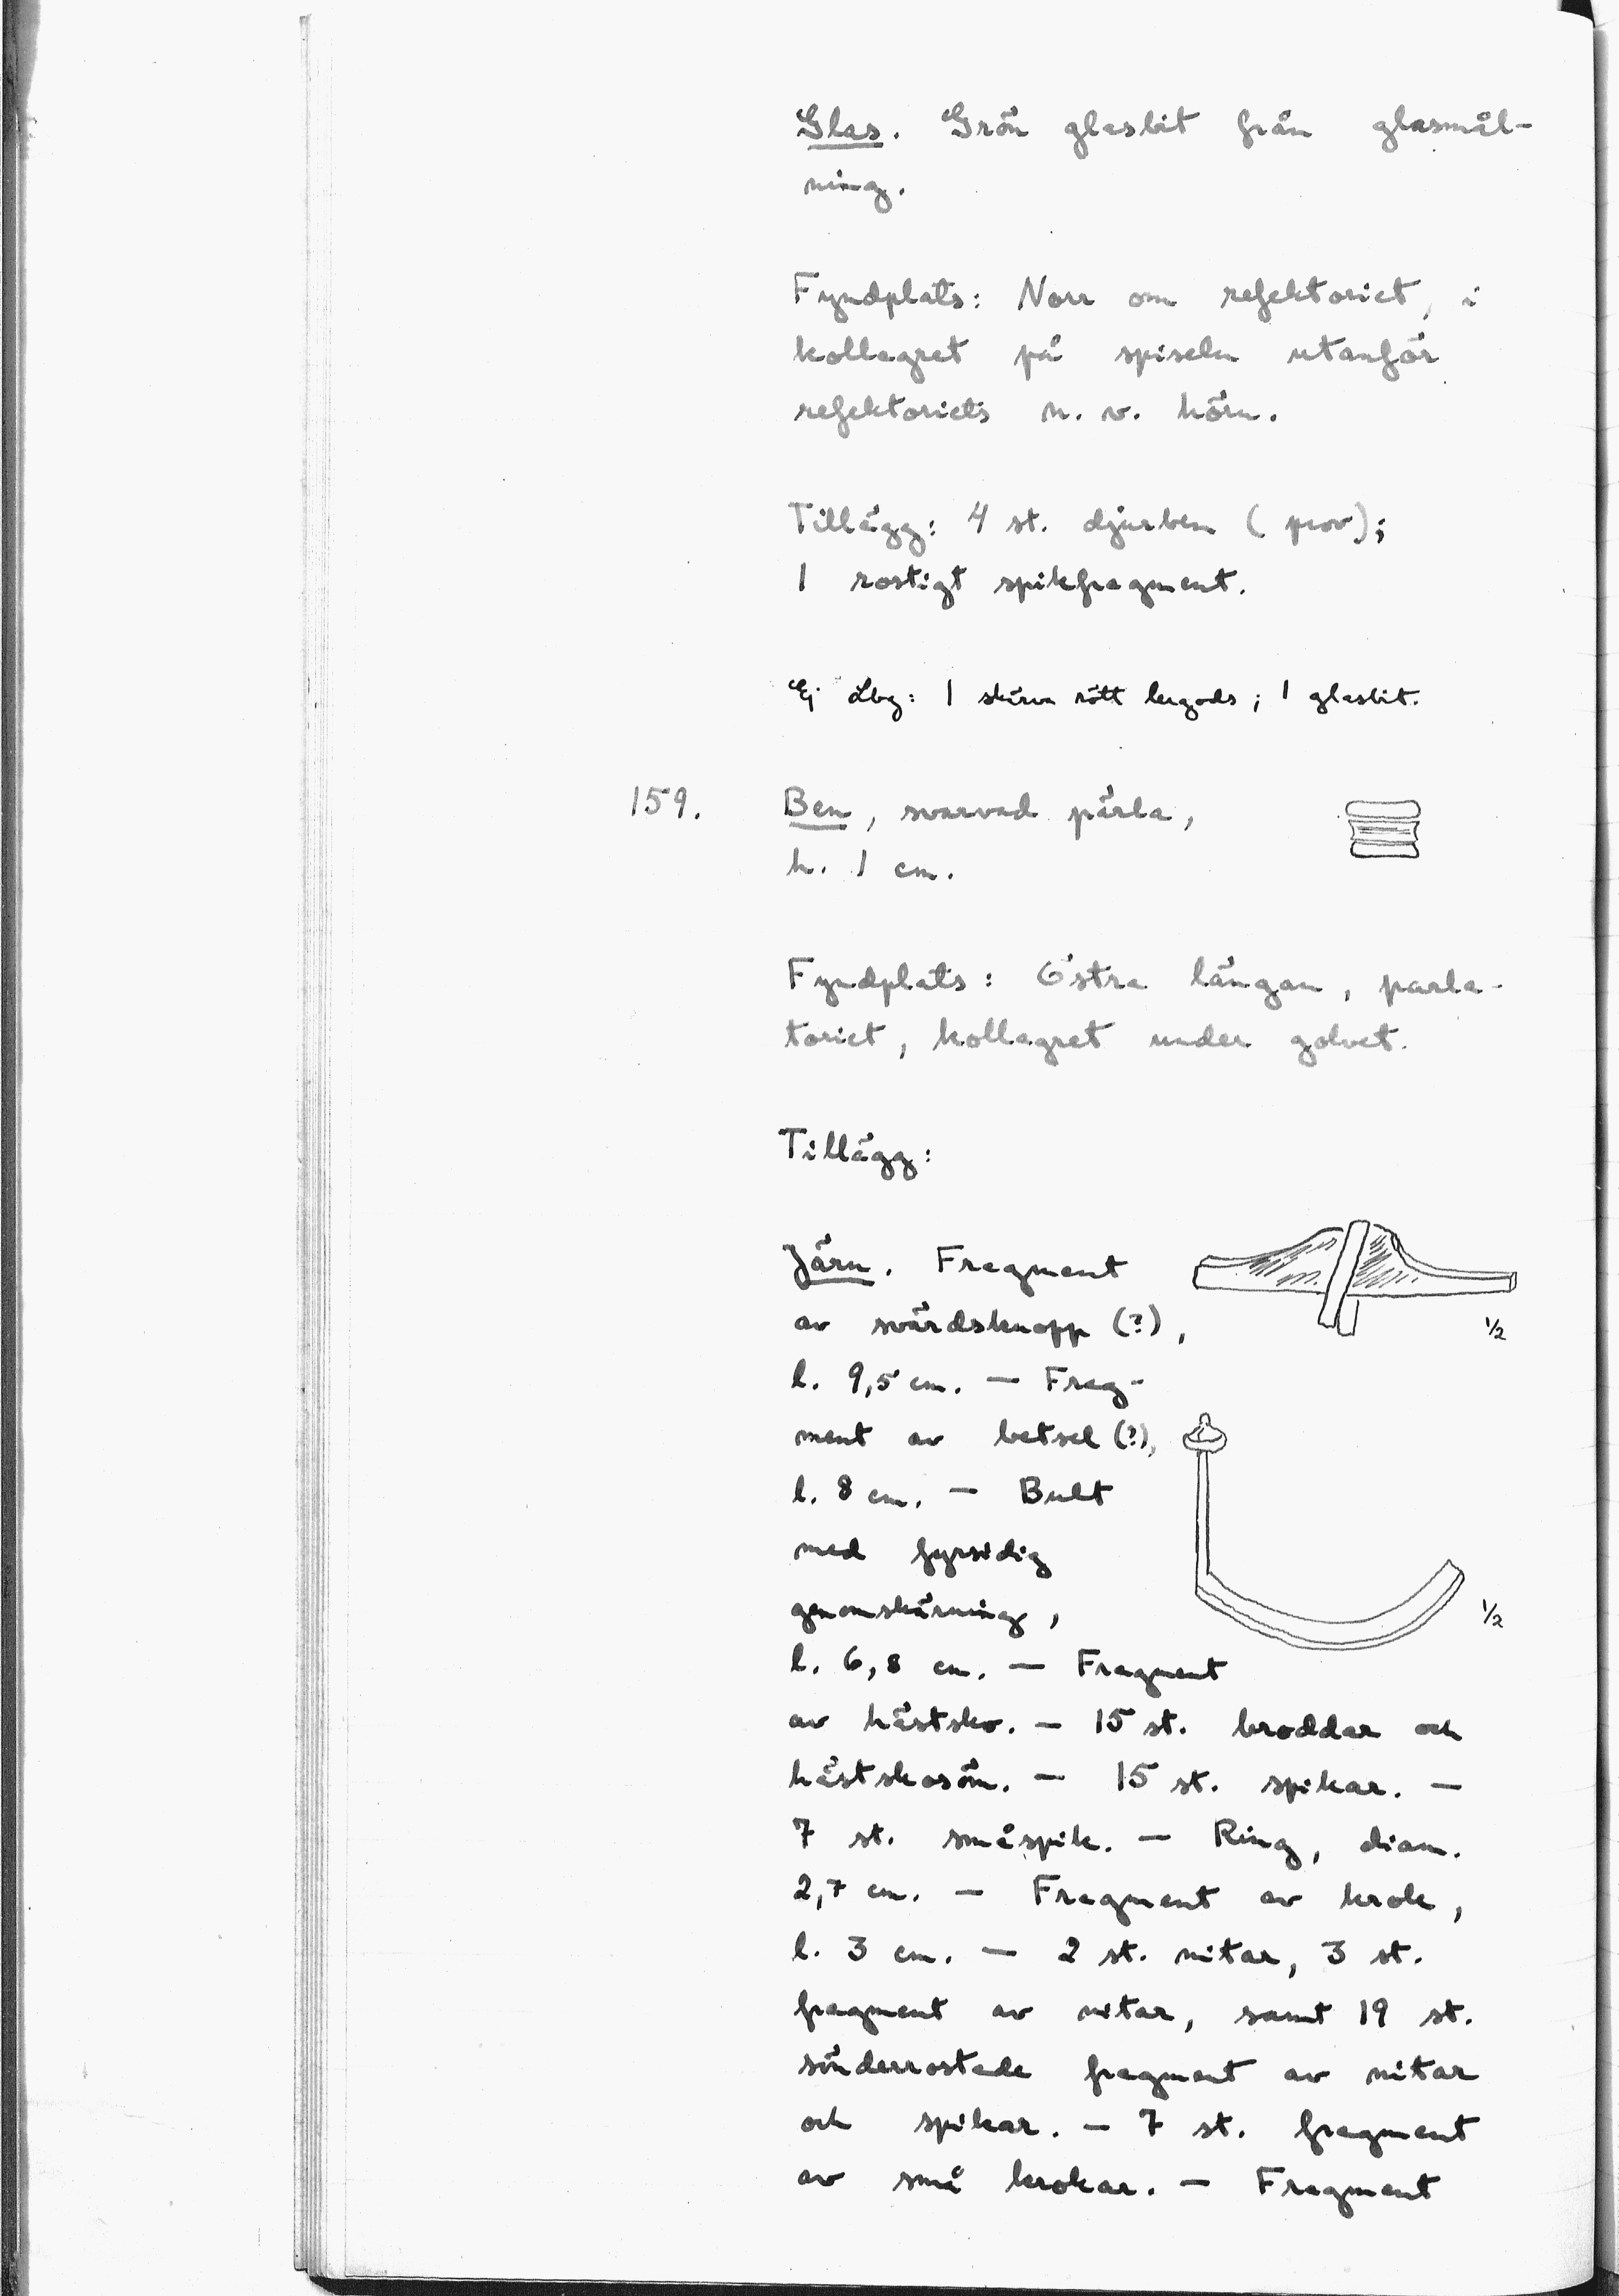 Glas. Grön glasbit från glasmål-
ning.
Fyndplats: Norr om refektoriet, i
kollagret på spiseln utanför
refektoriets n. v. hörn.
Tillägg: 4 st. djurben (prov);
1 rostigt spikfragment.
Ej Lbg: 1 skärva rött lergods; 1 glasbit.
159. Ben, svarvad pärla,
h. 1 cm.
Fyndplats: Östra längan, parla-
toriet, kollagret under golvet.
Tillägg:
Järn. Fragment
av svärdsknapp (?),
1/2
l. 9,5 cm. — Frag-
ment av betsel (?),
l. 8 cm. — Bult
med fyrsidig
genomskärning,
1/2
l. 6,8 cm. — Fragment
av hästsko. — 15 st. broddar och
hästskosöm. — 15 st. spikar. —
7 st. småspik. — Ring, diam.
2,7 cm. — Fragment av krok,
l. 3 cm. — 2 st. nitar, 3 st.
fragment av nitar, samt 19 st.
sönderrostade fragment av nitar
och spikar. — 7 st. fragment
av små krokar. — Fragment